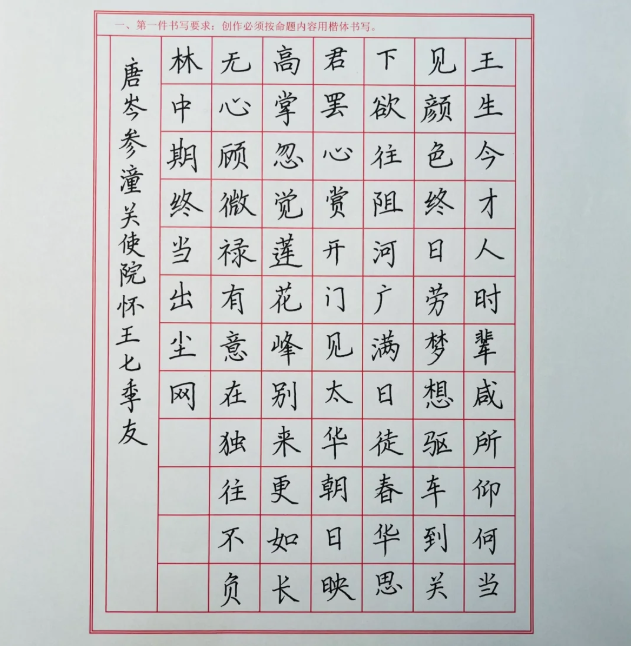 一、第一件书写要求：创作必须按命题内容用楷体书写。
王生今才人时辈咸所仰何当
见颜色终日劳梦想驱车到关
下欲往阻河广满日徒春华思
君罢心赏开门见太华朝日映
高掌忽觉莲花峰别来更如长
无心顾微禄有意在独往不负
林中期终当出尘网
唐岑参潼关使院怀王七季友